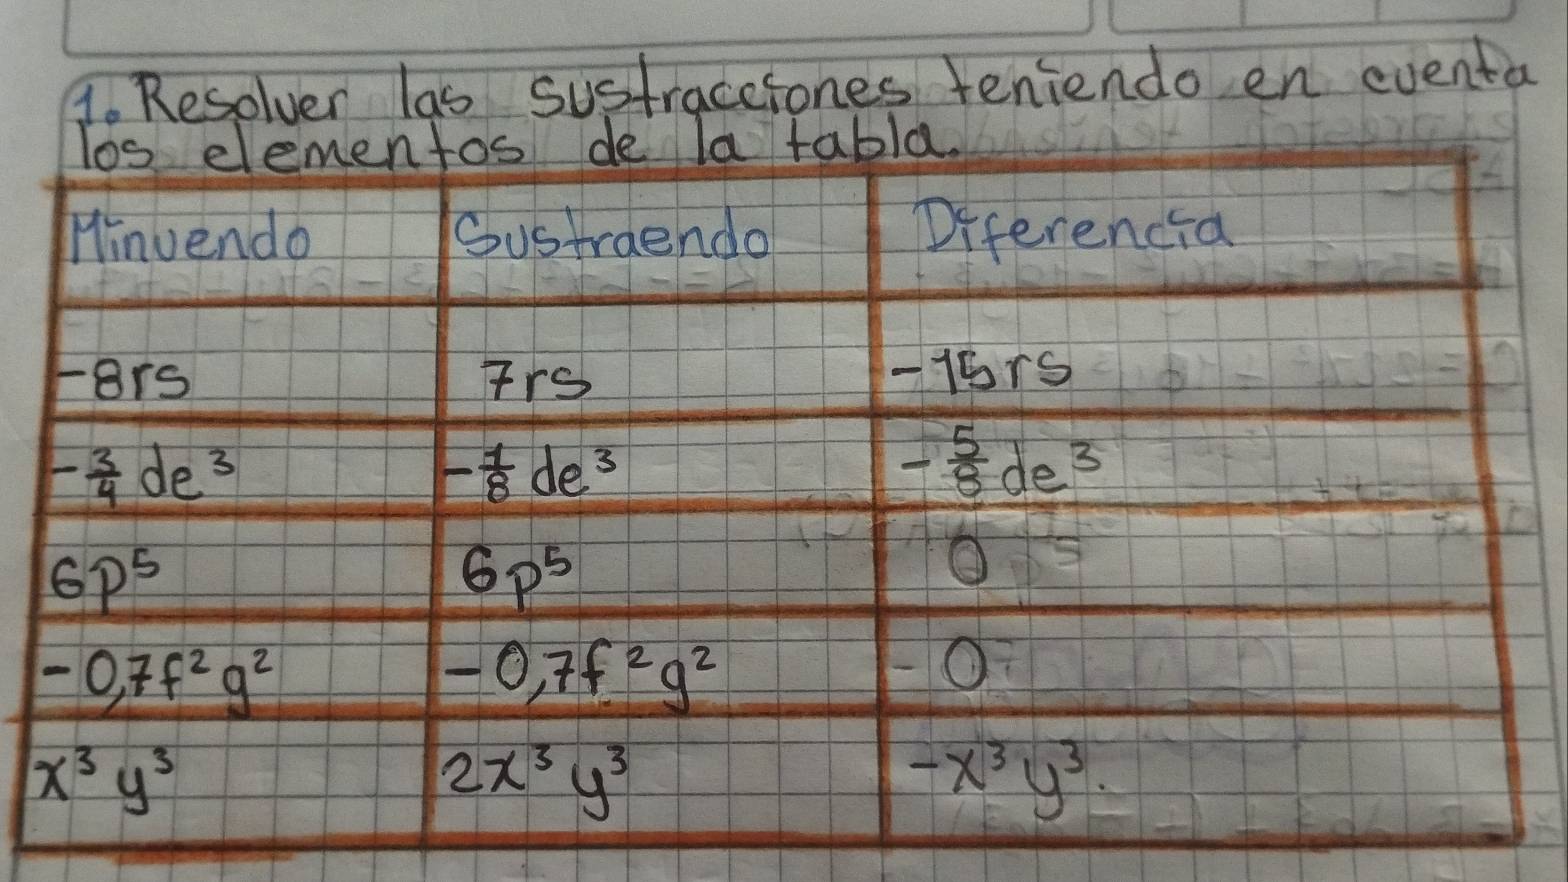 1. Resolver las sustracciones teniendo en cuenta
los elementos de la tabla.
Minuendo Sustraendo Diferencia
-8rs 7rs -15rs
-3/4 de³ -1/8 de³ -5/8 de³
6p⁵ 6p⁵ 0
-0,7f²g² -0,7f²g² 0
x³y³ 2x³y³ -x³y³.